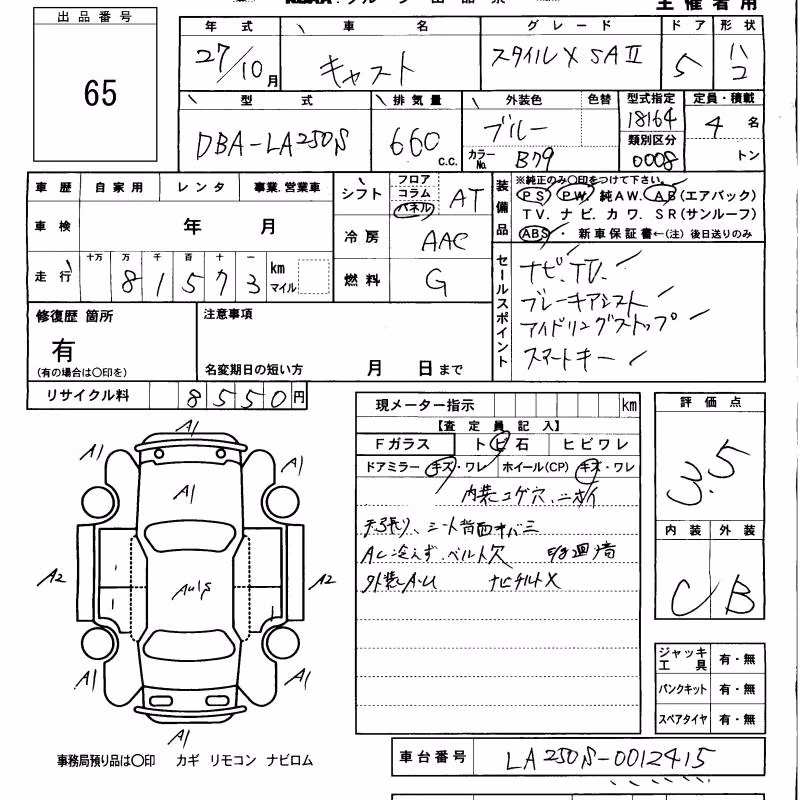 主催者用
出品番号
65
年式 車名 グレード ドア 形状
27/10月 キャスト スタイルX SAⅡ 5 ハコ
型式 排気量 外装色 色替 型式指定 定員・積載
DBA-LA250S 660 c.c. ブルー カラーNo. B79 18164 4 名
類別区分
0008 トン
車歴 自家用 レンタ 事業.営業車
車検 年 月
走行 十万 万 千 百 十 一 km マイル
8 1 5 7 3
シフト フロア コラム パネル AT
冷房 AAC
燃料 G
装備品
※純正のみ〇印をつけて下さい。
PS. PW. 純AW. AB(エアバック)
TV. ナビ. カワ. SR(サンルーフ)
ABS・新車保証書←(注)後日送りのみ
セールスポイント
ナビ.TV.
ブレーキアシスト
アイドリングストップ
スマートキー
修復歴 箇所
有
(有の場合は〇印を)
注意事項
名変期日の短い方 月 日まで
リサイクル料 8550円
現メーター指示 km
【査定員記入】
Fガラス トビ石 ヒビワレ
ドアミラー キズ・ワレ ホイール(CP) キズ・ワレ
内装コゲ穴、ニオイ
シート背面キバミ
AC冷えず、ベルト欠
外装A・U ナビチルトX
評価点
3.5
内装 外装
C B
ジャッキ工具 有・無
パンクキット 有・無
スペアタイヤ 有・無
A1
A1 A1
A1
A2 A2
A1 A1
A1
事務局預り品は〇印 カギ リモコン ナビロム
車台番号 LA250S-0012415